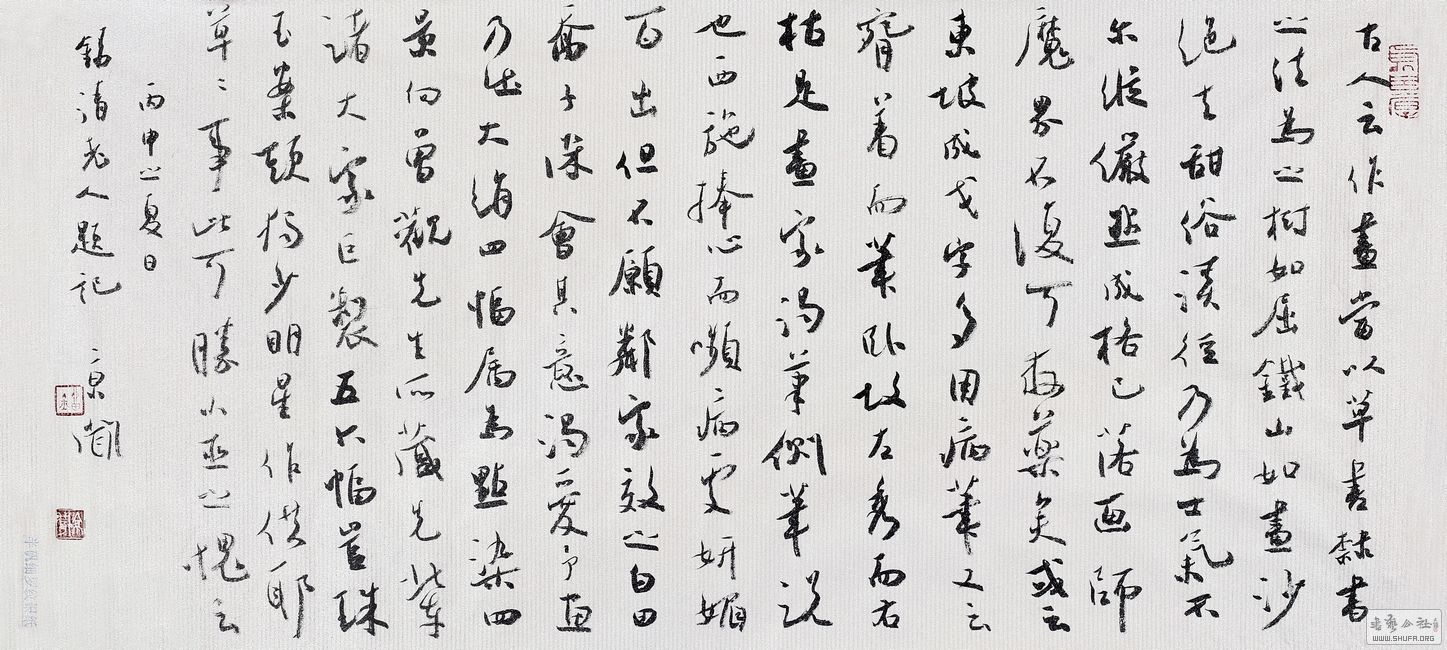 古人云作畫當以草書隸書
之法為之樹如屈鐵山如畫沙
絕去甜俗蹊徑乃為士氣不
尔縱儼然成格已落画師
魔界不復可救藥矣或云
東坡成戈字多用病筆又云
腕著而筆卧故左秀而右
枯是畫家渴筆側筆説
也西施捧心而嚬病處妍媚
百出但不願鄰家效之白田
喬子深會其意渴愛予畫
乃出大绢四幅属為點染四
景向曾觀先生所藏先輩
諸大家巨製五六幅豈珠
玉案頭獨少明星作供耶
草々事此可勝小巫之愧云
丙申之夏日
清老人題記
書藝公社
WWW.SHUFA.ORG